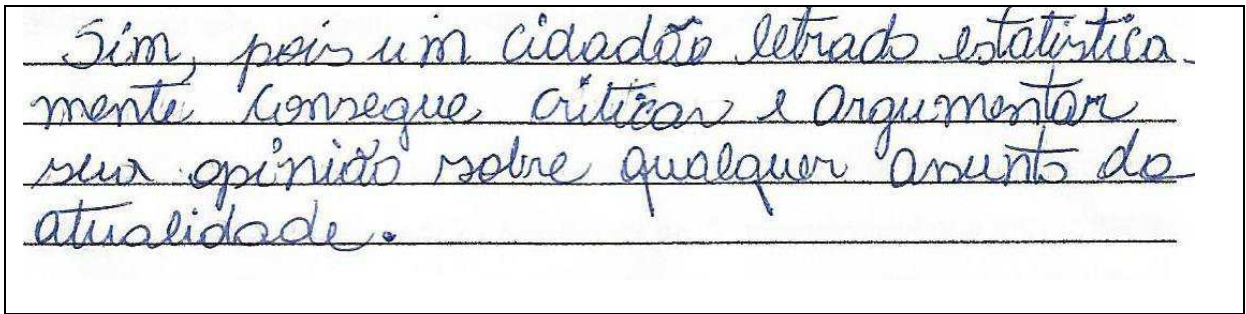 Sim, pois um cidadão letrado estatistica-
mente consegue criticar e argumentar
sua opinião sobre qualquer assunto da
atualidade.